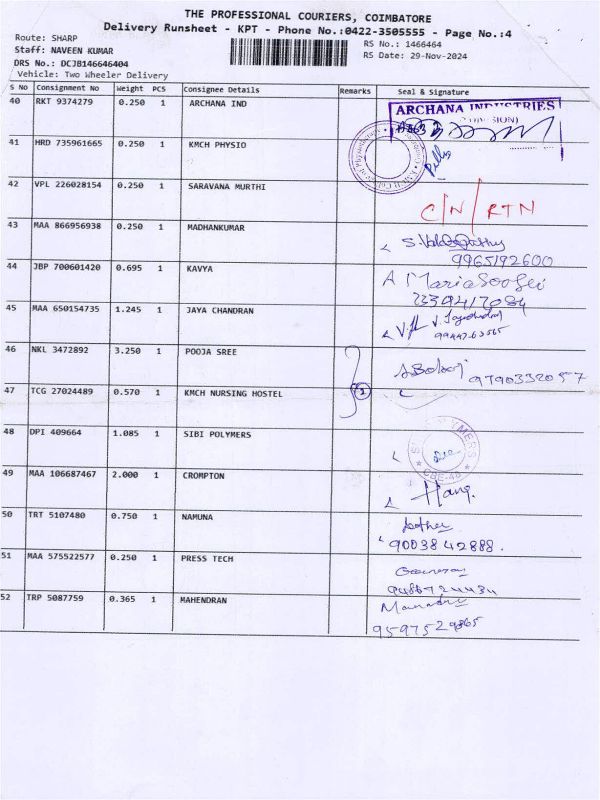 THE PROFESSIONAL COURIERS, COIMBATORE
Delivery Runsheet - KPT - Phone No.:0422-3505555 - Page No.:4
Route: SHARP
RS No.: 1466464
Staff: NAVEEN KUMAR
RS Date: 29-Nov-2024
DRS No.: DCJB146646404
Vehicle: Two Wheeler Delivery
S No Consignment No Weight PCS Consignee Details Remarks Seal & Signature
40 RKT 9374279 0.250 1 ARCHANA IND ARCHANA INDUSTRIES
41 HRD 735961665 0.250 1 KMCH PHYSIO
42 VPL 226028154 0.250 1 SARAVANA MURTHI C/N/RTN
43 MAA 866956938 0.250 1 MADHANKUMAR
9965192600
44 JBP 700601420 0.695 1 KAVYA
45 MAA 650154735 1.245 1 JAYA CHANDRAN
46 NKL 3472892 3.250 1 POOJA SREE
47 TCG 27024489 0.570 1 KMCH NURSING HOSTEL
48 DPI 409664 1.085 1 SIBI POLYMERS
49 MAA 106687467 2.000 1 CROMPTON
50 TRT 5107480 0.750 1 NAMUNA
9003842888.
51 MAA 575522577 0.250 1 PRESS TECH
52 TRP 5087759 0.365 1 MAHENDRAN